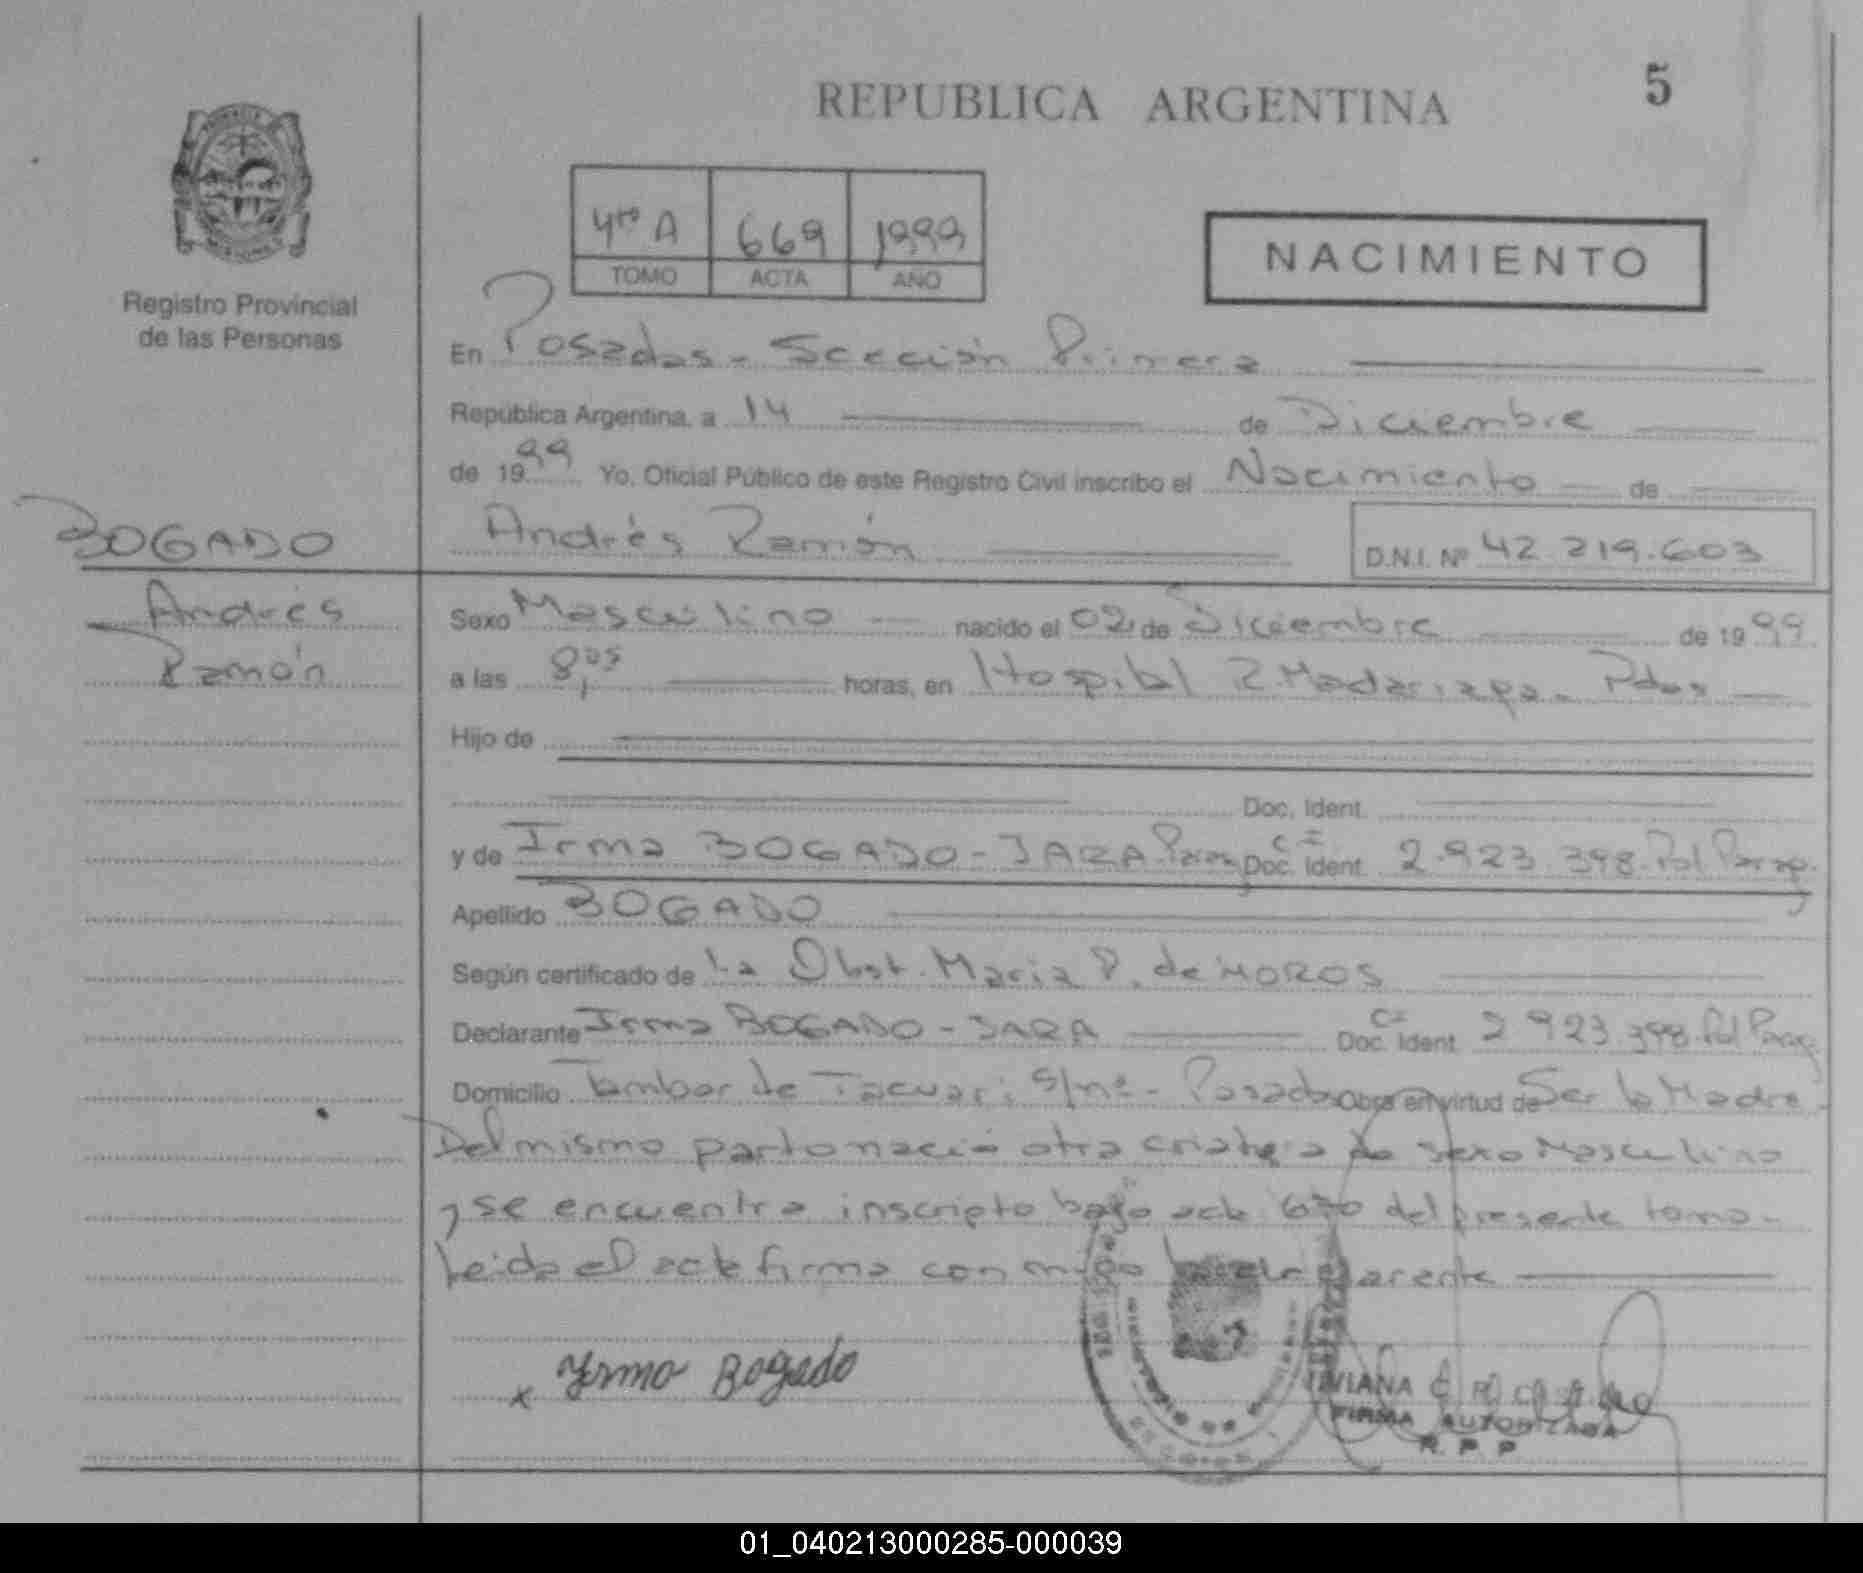 5
REPUBLICA ARGENTINA
4to A 669 1999
TOMO ACTA AÑO
NACIMIENTO
Registro Provincial
de las Personas
En Posadas - Sección Primera
República Argentina, a 14 de Diciembre
de 1999 Yo, Oficial Público de este Registro Civil inscribo el Nacimiento de
BOGADO
Andrés Ramón D.N.I. Nº 42.219.603
Andrés
Ramón
Sexo Masculino nacido el 02 de Diciembre de 1999
a las 8,05 horas, en Hospital R. Madariaga - Pdas
Hijo de
Doc. Ident.
y de Irma BOGADO - JARA Parag Doc. Ident. CI 2.923.398 Pol Parag.
Apellido BOGADO
Según certificado de La Obst. Maria P. de MOROS
Declarante Irma BOGADO - JARA Doc. Ident. CI 2.923.398 Pol Parag
Domicilio Tambor de Tacuari S/nº - Posadas Obra en virtud de Ser la Madre.
Del mismo parto nació otra criatura de sexo Masculino
y se encuentra inscripto bajo acta 670 del presente tomo -
Leida el acta firma conmigo la declarante
x Yrma Bogado
FIRMA AUTORIZADA
R. P. P
01_040213000285-000039